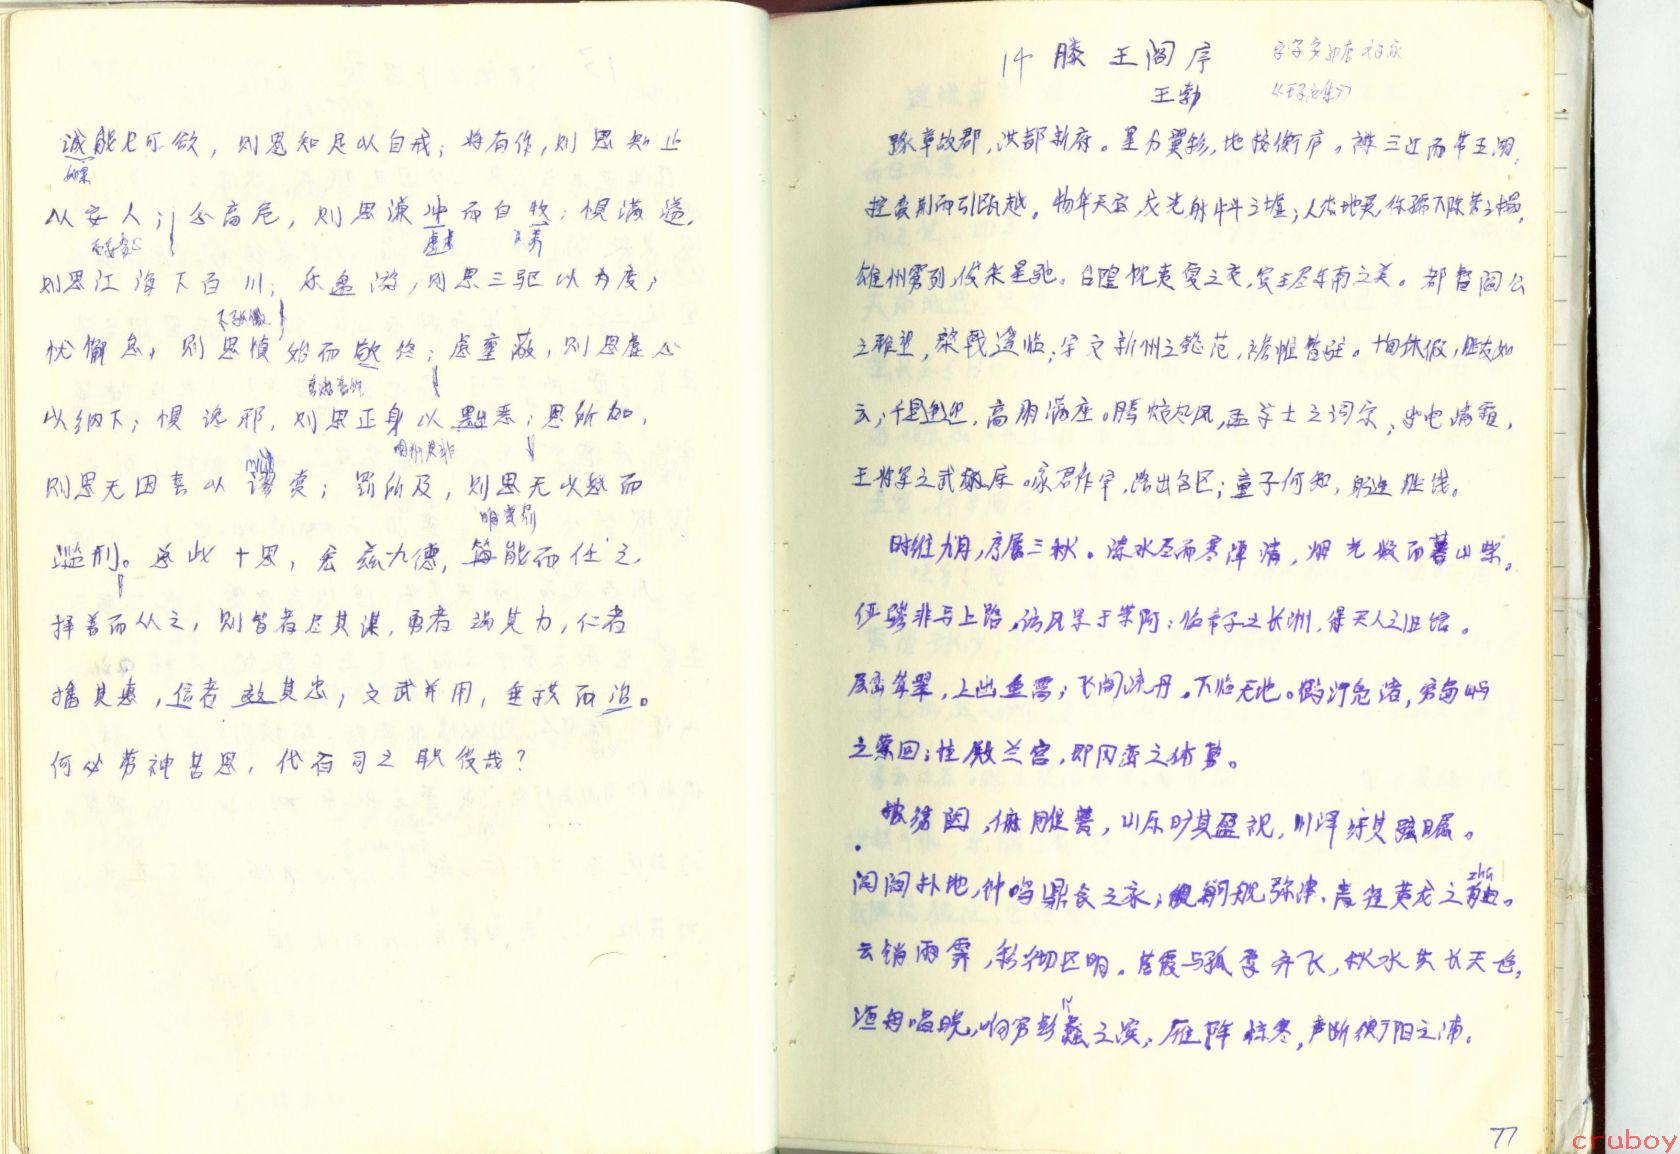 诚能见可欲，则思知足以自戒；将有作，则思知止
如果
以安人；念高危，则思谦冲而自牧；惧满溢，
则思江海下百川；乐盘游，则思三驱以为度；
忧懈怠，则思慎始而敬终；虑壅蔽，则思虚心
以纳下；惧谗邪，则思正身以黜恶；恩所加，
miù
则思无因喜以谬赏；罚所及，则思无以怒而
明赏罚
滥刑。总此十思，宏兹九德，简能而任之，
择善而从之，则智者尽其谋，勇者竭其力，仁者
播其惠，信者效其忠；文武并用，垂拱而治。
何必劳神苦思，代百司之职役哉？
14 滕王阁序
王勃
豫章故郡，洪都新府。星分翼轸，地接衡庐。襟三江而带五湖，
控蛮荆而引瓯越。物华天宝，龙光射牛斗之墟；人杰地灵，徐孺下陈蕃之榻。
雄州雾列，俊采星驰。台隍枕夷夏之交，宾主尽东南之美。都督阎公
之雅望，棨戟遥临；宇文新州之懿范，襜帷暂驻。十旬休假，胜友如
云；千里逢迎，高朋满座。腾蛟起凤，孟学士之词宗；紫电清霜，
王将军之武库。家君作宰，路出名区；童子何知，躬逢胜饯。
时维九月，序属三秋。潦水尽而寒潭清，烟光凝而暮山紫。
俨骖騑与上路，访风景于崇阿；临帝子之长洲，得天人之旧馆。
层峦耸翠，上出重霄；飞阁流丹，下临无地。鹤汀凫渚，穷岛屿
之萦回；桂殿兰宫，即冈峦之体势。
披绣闼，俯雕甍，山原旷其盈视，川泽纡其骇瞩。
zhú
闾阎扑地，钟鸣鼎食之家；舸舰弥津，青雀黄龙之舳。
云销雨霁，彩彻区明。落霞与孤鹜齐飞，秋水共长天一色，
lǐ
渔舟唱晚，响穷彭蠡之滨；雁阵惊寒，声断衡阳之浦。
77
cruboy